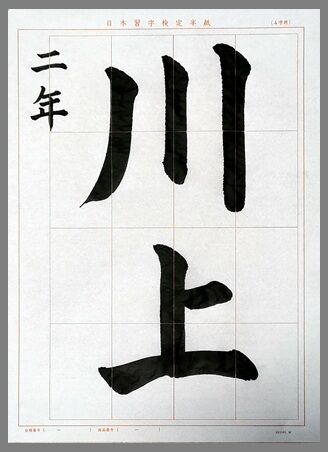 日本習字検定半紙
(4字用)
川上
二年